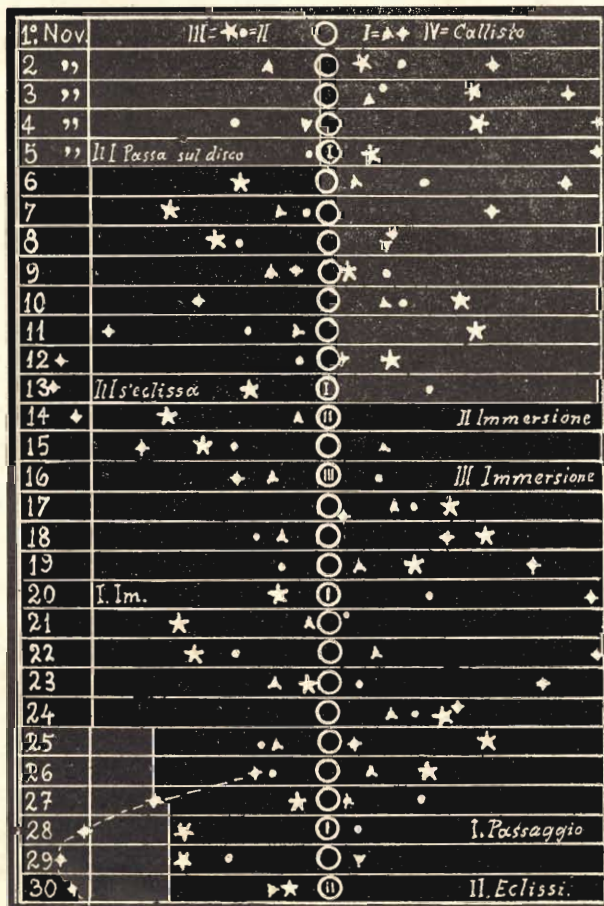 1º Nov. III= •=II I= IV= Callisto
2 ,,
3 ,,
4 ,,
5 ,, Il I Passa sul disco I
6
7
8
9
10
11
12
13 Il I s'eclissa I
14 II II Immersione
15
16 III III Immersione
17
18
19
20 I. Im. I
21
22
23
24
25
26
27
28 I I. Passaggio
29
30 II II. Eclissi.